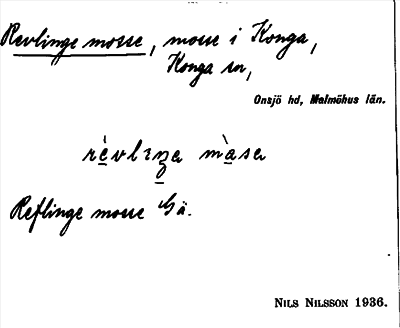 Revlinge mosse, mosse i Konga,
Konga sn,
Onsjö hd, Malmöhus län.
rèvlɪŋa màsa
Reflinge mosse Gä.
NILS NILSSON 1936.